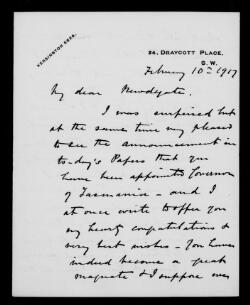 KENSINGTON 6294.
34, DRAYCOTT PLACE,
S.W.
February 10th 1917
My dear Newdegate.
I was surprised but
at the same time very pleased
to see the announcement in
to-day's Papers that you
have been appointed Governor
of Tasmania - and I
at once write to offer you
my hearty congratulations &
very best wishes - You have
indeed become a great
magnate & I suppose